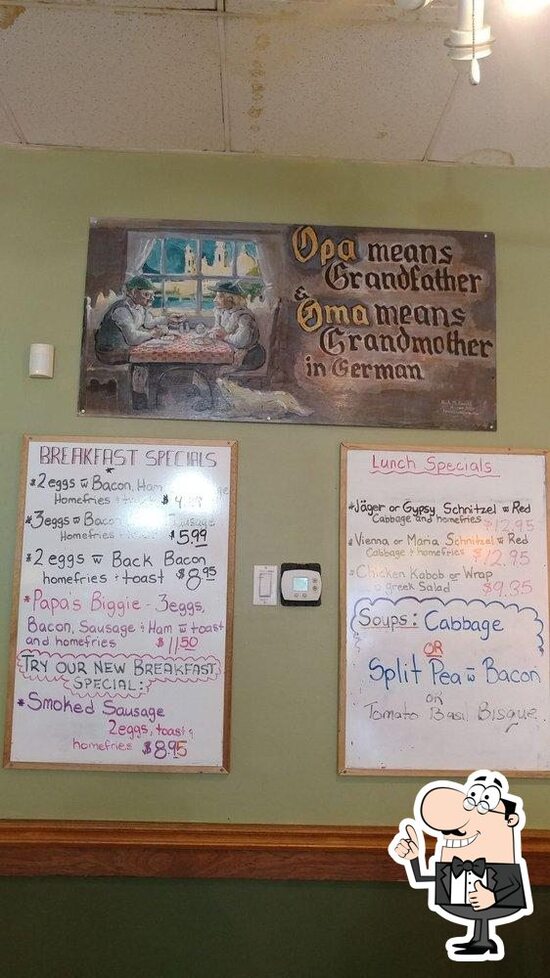 Opa means
Grandfather
&
Oma means
Grandmother
in German
BREAKFAST SPECIALS
*2 eggs w Bacon, Ham
Homefries + toast $4.
*3 eggs w Bacon Sausage
Homefries toast $5.99
*2 eggs w Back Bacon
homefries + toast $8.95
*Papa's Biggie - 3 eggs,
Bacon, Sausage + Ham w toast
and homefries $11.50
TRY OUR NEW BREAKFAST
SPECIAL:
*Smoked Sausage
2 eggs, toast +
homefries $8.95
Lunch Specials
*Jäger or Gypsy Schnitzel w Red
Cabbage and homefries $12.95
*Vienna or Maria Schnitzel w Red
Cabbage + homefries $12.95
*Chicken Kabob or Wrap
greek Salad $9.35
Soups: Cabbage
OR
Split Pea w Bacon
OR
Tomato Basil Bisque